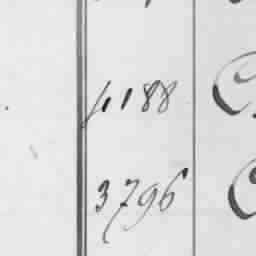 4188
3796